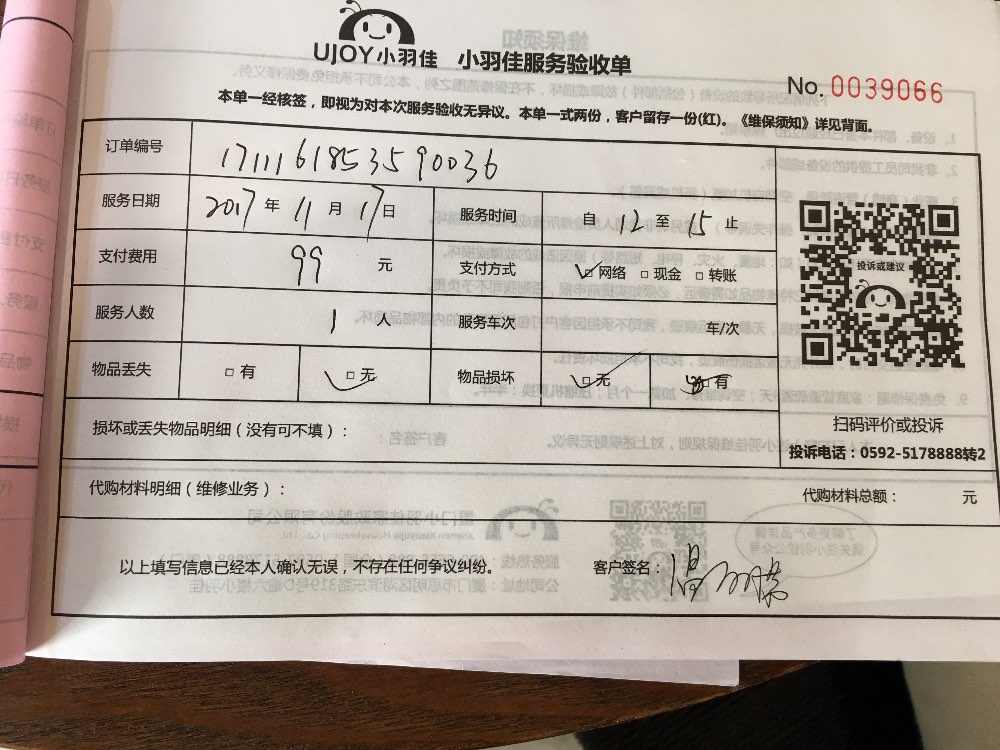 UJOY小羽佳 小羽佳服务验收单
No. 0039066
本单一经核签，即视为对本次服务验收无异议。本单一式两份，客户留存一份(红)。《维保须知》详见背面。
订单编号 1711161853590036
服务日期 2017年11月17日 服务时间 自12至15止
支付费用 99元 支付方式 ☑网络 □现金 □转账
服务人数 1人 服务车次 车/次
物品丢失 □有 ☑无 物品损坏 ☑无 □有
投诉或建议
扫码评价或投诉
投诉电话：0592-5178888转2
损坏或丢失物品明细（没有可不填）：
代购材料明细（维修业务）： 代购材料总额： 元
以上填写信息已经本人确认无误，不存在任何争议纠纷。 客户签名：